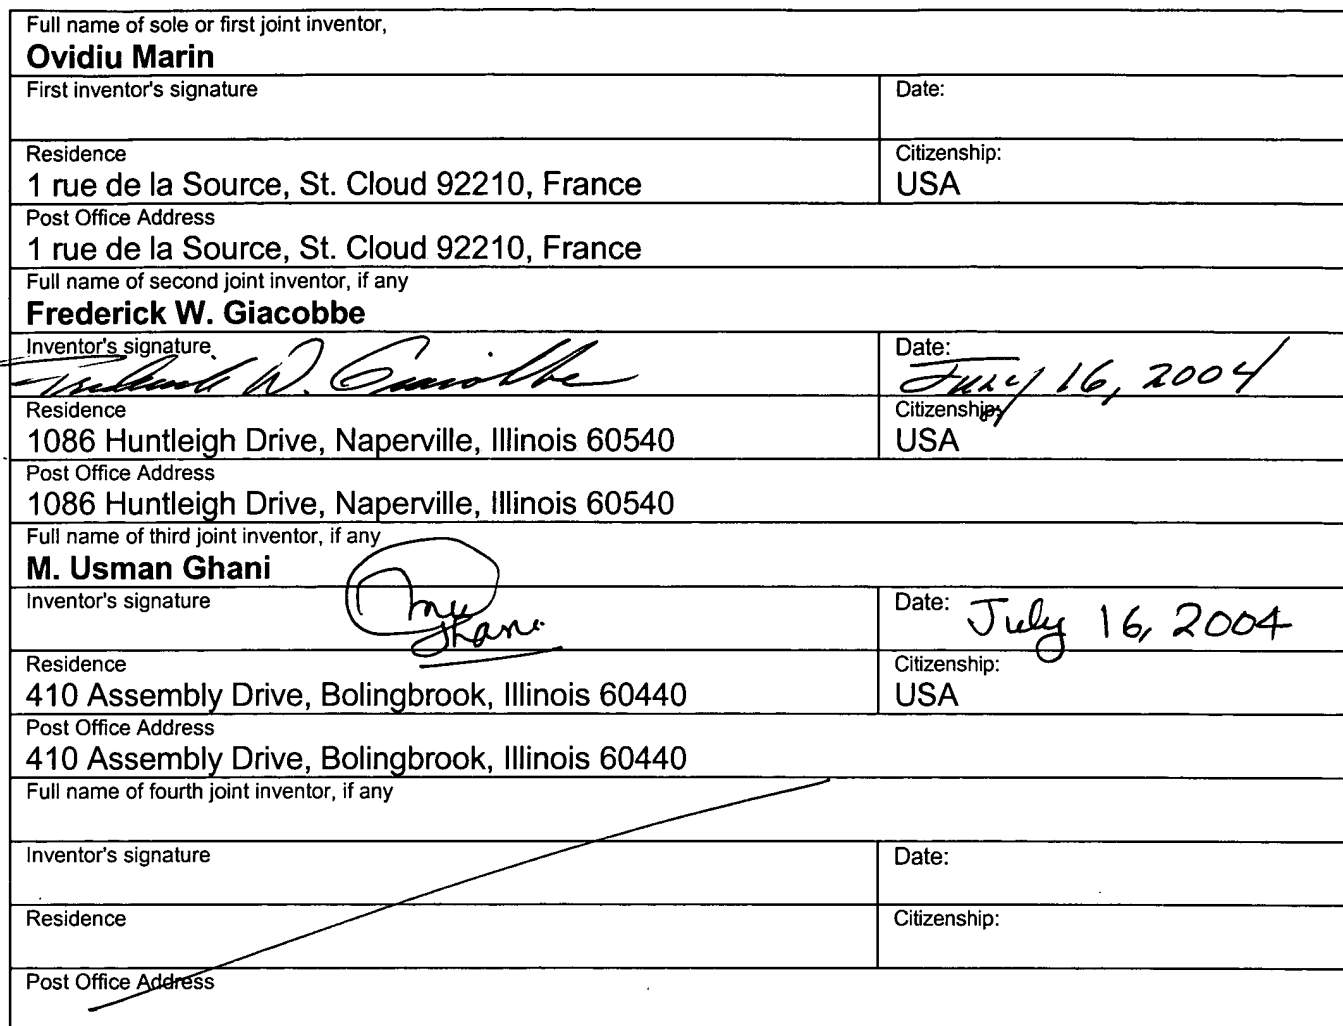 Full name of sole or first joint inventor,
Ovidiu Marin
First inventor's signature Date:
Residence Citizenship:
1 rue de la Source, St. Cloud 92210, France USA
Post Office Address
1 rue de la Source, St. Cloud 92210, France
Full name of second joint inventor, if any
Frederick W. Giacobbe
Inventor's signature Date:
Frederick W. Giacobbe July 16, 2004
Residence Citizenship:
1086 Huntleigh Drive, Naperville, Illinois 60540 USA
Post Office Address
1086 Huntleigh Drive, Naperville, Illinois 60540
Full name of third joint inventor, if any
M. Usman Ghani
Inventor's signature Date: July 16, 2004
Ghani
Residence Citizenship:
410 Assembly Drive, Bolingbrook, Illinois 60440 USA
Post Office Address
410 Assembly Drive, Bolingbrook, Illinois 60440
Full name of fourth joint inventor, if any
Inventor's signature Date:
Residence Citizenship:
Post Office Address